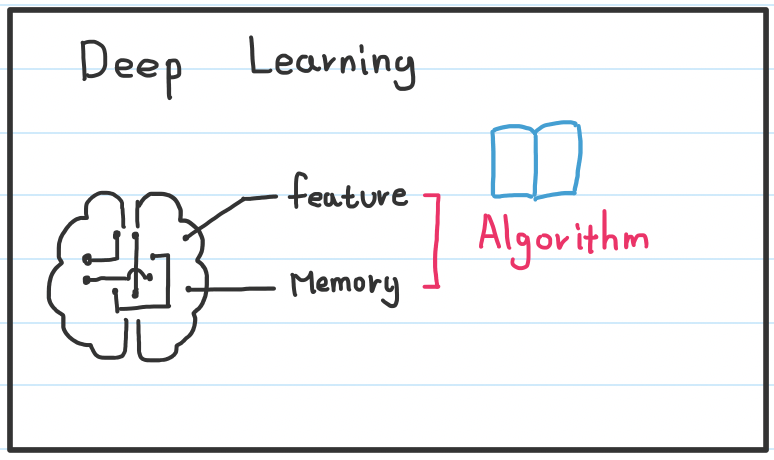 Deep Learning
feature
Memory
Algorithm